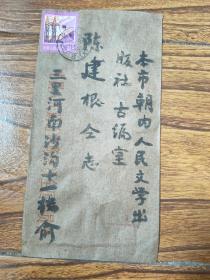 本市朝内人民文学出
版社古编室
陈建根仝志
三里河南沙沟十一楼俞